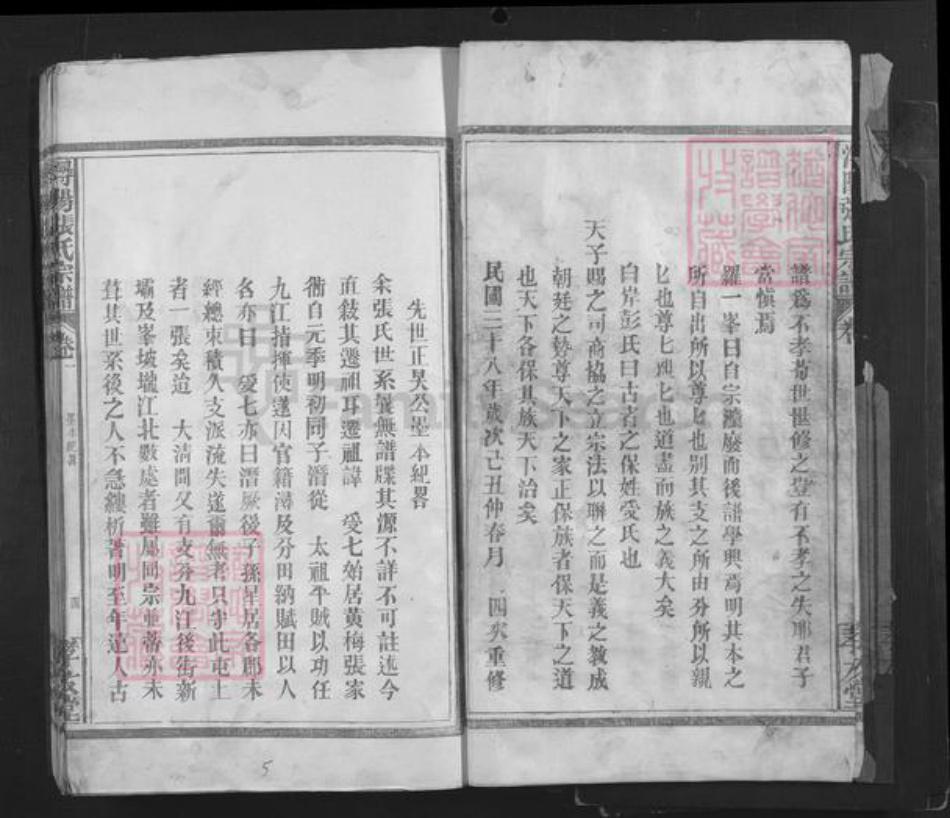 譜爲不孝苟世世修之豈有不孝之失耶君子
當愼焉
羅一峯曰自宗灋廢而後譜學興焉明其本之
所自出所以尊也別其支之所由分所以親
也尊尊親親也道盡而族之義大矣
白岸彭氏曰古者之保姓受氏也
天子賜之司商協之立宗法以聯之而是義之教成
朝廷之勢尊天下之家正保族者保天下之道
也天下各保其族天下治矣
民國三十八年歲次己丑仲春月 四次重修
先世正昊公墨本紀畧
余張氏世系叢無譜牒其源不詳不可註迄今
直敍其遷祖耳遷祖諱 受七始居黃梅張家
衕自元季明初同子潛從 太祖平賊以功任
九江指揮使遂因官籍潯及分田納賦田以人
名亦曰 愛七亦曰潛厥後子孫星居各郡未
經總束積久支派流失遂爾無考只守此屯上
者一張矣迨 大清間又有支分九江後街新
壩及峯坡壠江北數處者雖屬同宗並蒂亦未
葺其世系後之人不急纘析著明至年遠人古
潯陽張氏宗譜
卷一
墨本紀畧
四
孝友堂
潯陽張氏宗譜
卷
孝友堂
譜學會
收藏
5